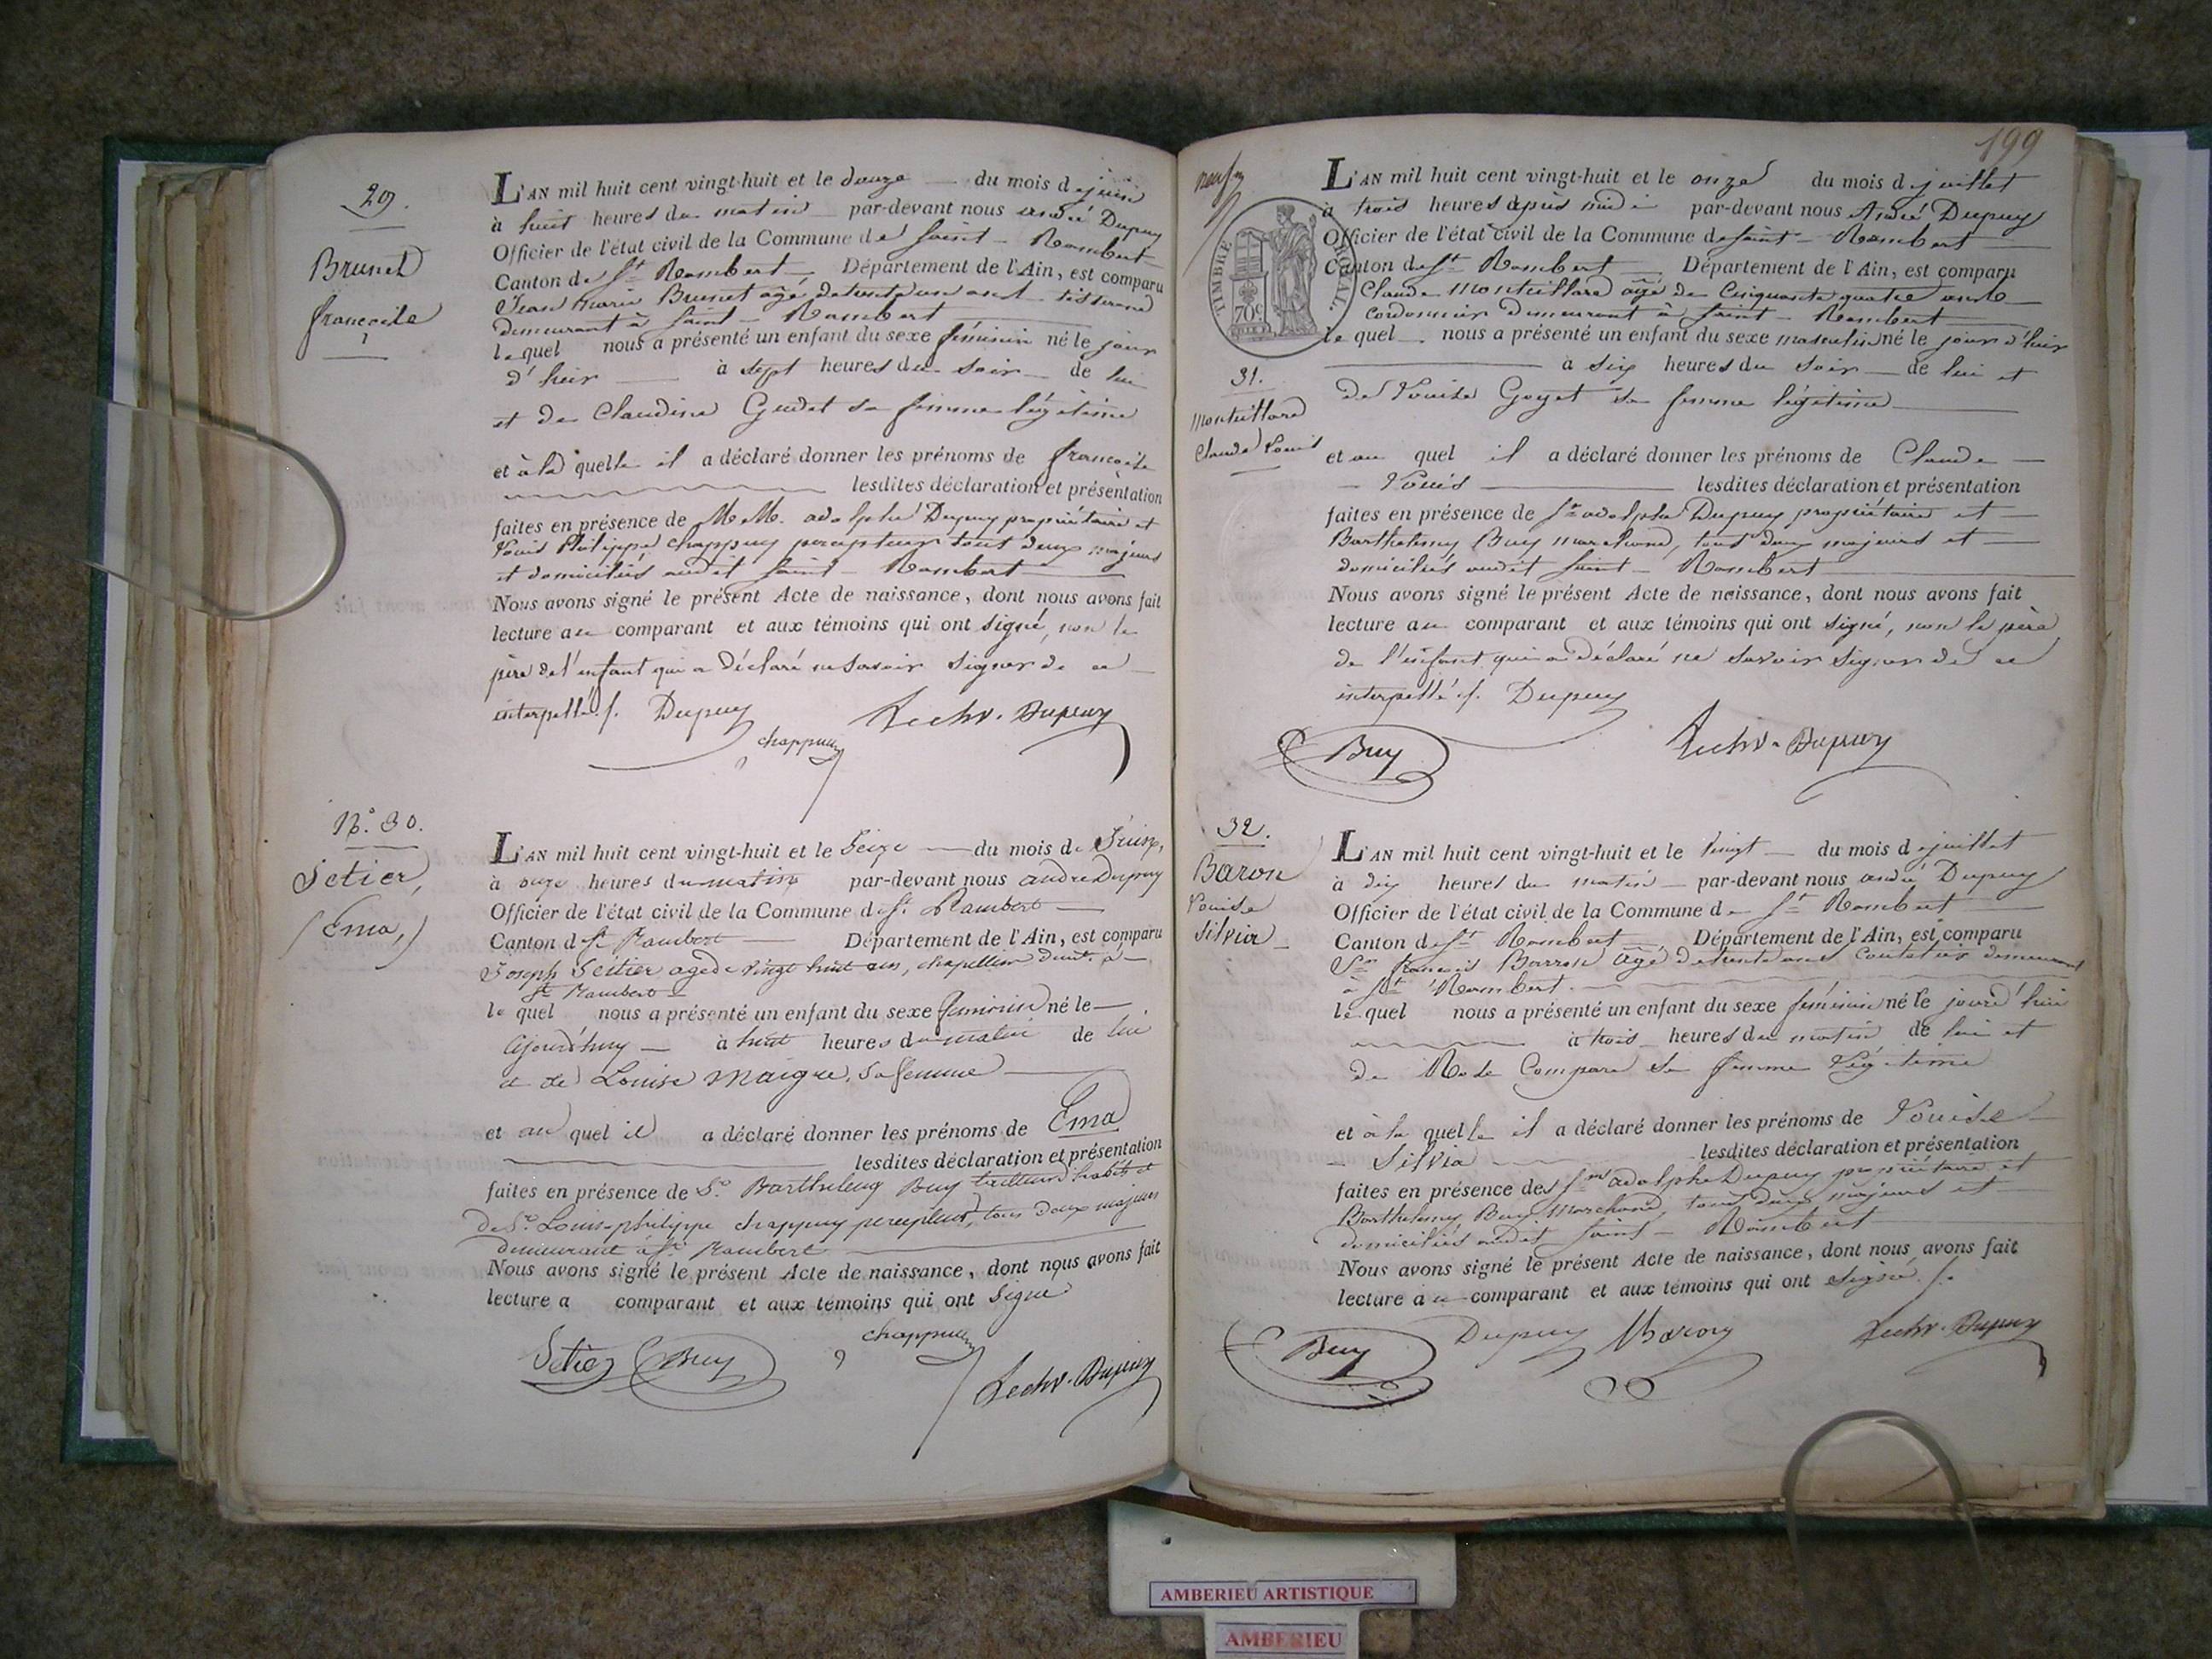 29.
Brunet
francoise
L'AN mil huit cent vingt-huit et le douze du mois de juin
à huit heures du matin par-devant nous andré Dupuy
Officier de l'état civil de la Commune de saint-Rambert
Canton de St Rambert Département de l'Ain, est comparu
Jean Marie Brunet âgé de trente un ans tisserand
demeurant à saint-Rambert
lequel nous a présenté un enfant du sexe féminin né le jour
d'hier à sept heures du soir de lui
et de Claudine Gudet sa femme légitime
et à la quelle il a déclaré donner les prénoms de francoise
lesdites déclaration et présentation
faites en présence de MM. adolphe Dupuy propriétaire et
Louis Philippe chappuy percepteur tout deux majeurs
et domiciliés audit saint-Rambert
Nous avons signé le présent Acte de naissance, dont nous avons fait
lecture au comparant et aux témoins qui ont signé, non le
père de l'enfant qui a déclaré ne savoir signer de ce
interpellé ./. Dupuy
chappuy
Dupuy
N.° 30.
Setier,
(Ema,)
L'AN mil huit cent vingt-huit et le Seize du mois de Juin,
à onze heures du matin par-devant nous andre Dupuy
Officier de l'état civil de la Commune de St. Rambert
Canton de St Rambert Département de l'Ain, est comparu
Joseph Setier agé de vingt huit ans, chapellier demt. à
St. Rambert
le quel nous a présenté un enfant du sexe feminin né le
ajourd'huy à huit heures du matin de lui
et de Louise Maigre, sa femme
et au quel il a déclaré donner les prénoms de Ema
lesdites déclaration et présentation
faites en présence de Sr. Barthelemy Buy tailleur d'habits et
de Sr. Louis-philippe chappuy percepteur, tous deux majeurs
demeurant à St. Rambert
Nous avons signé le présent Acte de naissance, dont nous avons fait
lecture a comparant et aux témoins qui ont signé
Setier Buy chappuy
Dupuy
199
neuf
TIMBRE ROYAL
70c
31.
Monteillard
Claude Louis
L'AN mil huit cent vingt-huit et le onze du mois de juillet
à trois heures après midi par-devant nous André Dupuy
Officier de l'état civil de la Commune de saint-Rambert
Canton de St Rambert Département de l'Ain, est comparu
Claude Monteillard âgé de Cinquante quatre ans
cordonnier demeurant à saint-Rambert
le quel nous a présenté un enfant du sexe masculin né le jour d'hier
à six heures du soir de lui et
de Louise Goyet sa femme légitime
et au quel il a déclaré donner les prénoms de Claude
Louis lesdites déclaration et présentation
faites en présence de Sr adolphe Dupuy propriétaire et
Barthelemy Buy marchand, tous deux majeurs et
domiciliés audit saint-Rambert
Nous avons signé le présent Acte de naissance, dont nous avons fait
lecture au comparant et aux témoins qui ont signé, non le père
de l'enfant qui a déclaré ne savoir signer de ce
interpellé ./. Dupuy
Buy Dupuy
32.
Baron
Louise
Silvia
L'AN mil huit cent vingt-huit et le vingt du mois de juillet
à dix heures du matin par-devant nous andré Dupuy
Officier de l'état civil de la Commune de St Rambert
Canton de St Rambert Département de l'Ain, est comparu
Sr francois Barron âgé de trente ans Coutelier demeurant
à St Rambert.
le quel nous a présenté un enfant du sexe féminin né le jourd'hui
à trois heures du matin de lui et
de Rose Compare sa femme légitime
et à la quelle il a déclaré donner les prénoms de Louise
Silvia lesdites déclaration et présentation
faites en présence des Srs adolphe Dupuy propriétaire et
Barthelemy Buy Marchand, tous deux majeurs et
domiciliés audit saint-Rambert
Nous avons signé le présent Acte de naissance, dont nous avons fait
lecture au comparant et aux témoins qui ont signé ./.
Buy Dupuy Baron Dupuy
AMBERIEU ARTISTIQUE
AMBERIEU